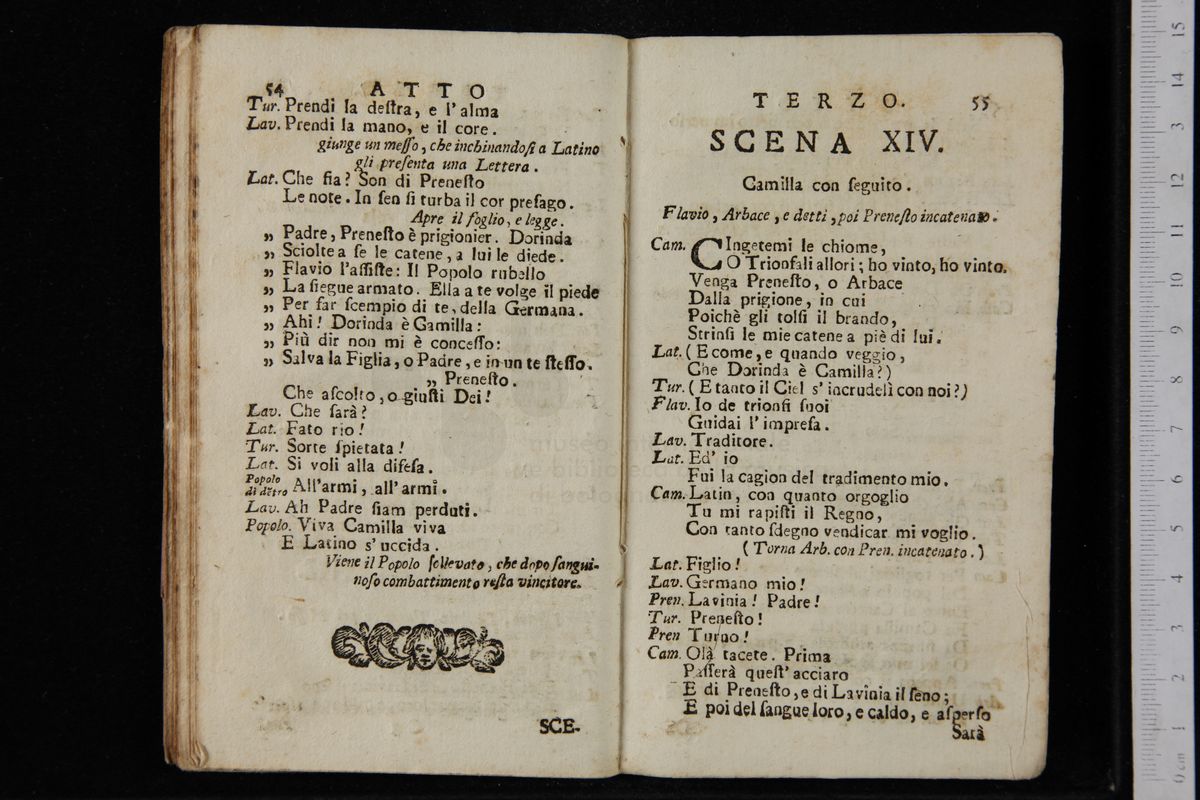 54 ATTO
Tur. Prendi la deſtra, e l'alma
Lav. Prendi la mano, e il core.
giunge un meſſo, che inchinandoſi a Latino
gli preſenta una Lettera.
Lat. Che fia? Son di Preneſto
Le note. In ſen ſi turba il cor preſago.
Apre il foglio, e legge.
„ Padre, Preneſto è prigionier. Dorinda
„ Sciolte a ſe le catene, a lui le diede.
„ Flavio l'aſſiſte: Il Popolo rubello
„ La ſiegue armato. Ella a te volge il piede
„ Per far ſcempio di te, della Germana.
„ Ahi! Dorinda è Gamilla:
„ Più dir non mi è conceſſo:
„ Salva la Figlia, o Padre, e in un te ſteſſo.
„ Preneſto.
Che aſcolto, o giuſti Dei!
Lav. Che ſarà?
Lat. Fato rio!
Tur. Sorte ſpietata!
Lat. Si voli alla difeſa.
Popolo di detro All'armi, all'armi.
Lav. Ah Padre ſiam perduti.
Popolo. Viva Camilla viva
E Latino s'uccida.
Viene il Popolo ſollevato, che dopo ſangui-
noſo combattimento reſta vincitore.
SCE-
TERZO. 55
SCENA XIV.
Camilla con ſeguito.
Flavio, Arbace, e detti, poi Preneſto incatenato.
Cam. CIngetemi le chiome,
O Trionfali allori; ho vinto, ho vinto.
Venga Preneſto, o Arbace
Dalla prigione, in cui
Poichè gli tolſi il brando,
Strinſi le mie catene a piè di lui.
Lat. (E come, e quando veggio,
Che Dorinda è Camilla?)
Tur. (E tanto il Ciel s'incrudelì con noi?)
Flav. Io de trionfi ſuoi
Guidai l'impreſa.
Lav. Traditore.
Lat. Ed' io
Fui la cagion del tradimento mio.
Cam. Latin, con quanto orgoglio
Tu mi rapiſti il Regno,
Con tanto ſdegno vendicar mi voglio.
(Torna Arb. con Pren. incatenato.)
Lat. Figlio!
Lav. Germano mio!
Pren. Lavinia! Padre!
Tur. Preneſto!
Pren Turno!
Cam. Olà tacete. Prima
Paſſerà queſt'acciaro
E di Preneſto, e di Lavinia il ſeno;
E poi del ſangue loro, e caldo, e aſperſo
Sarà